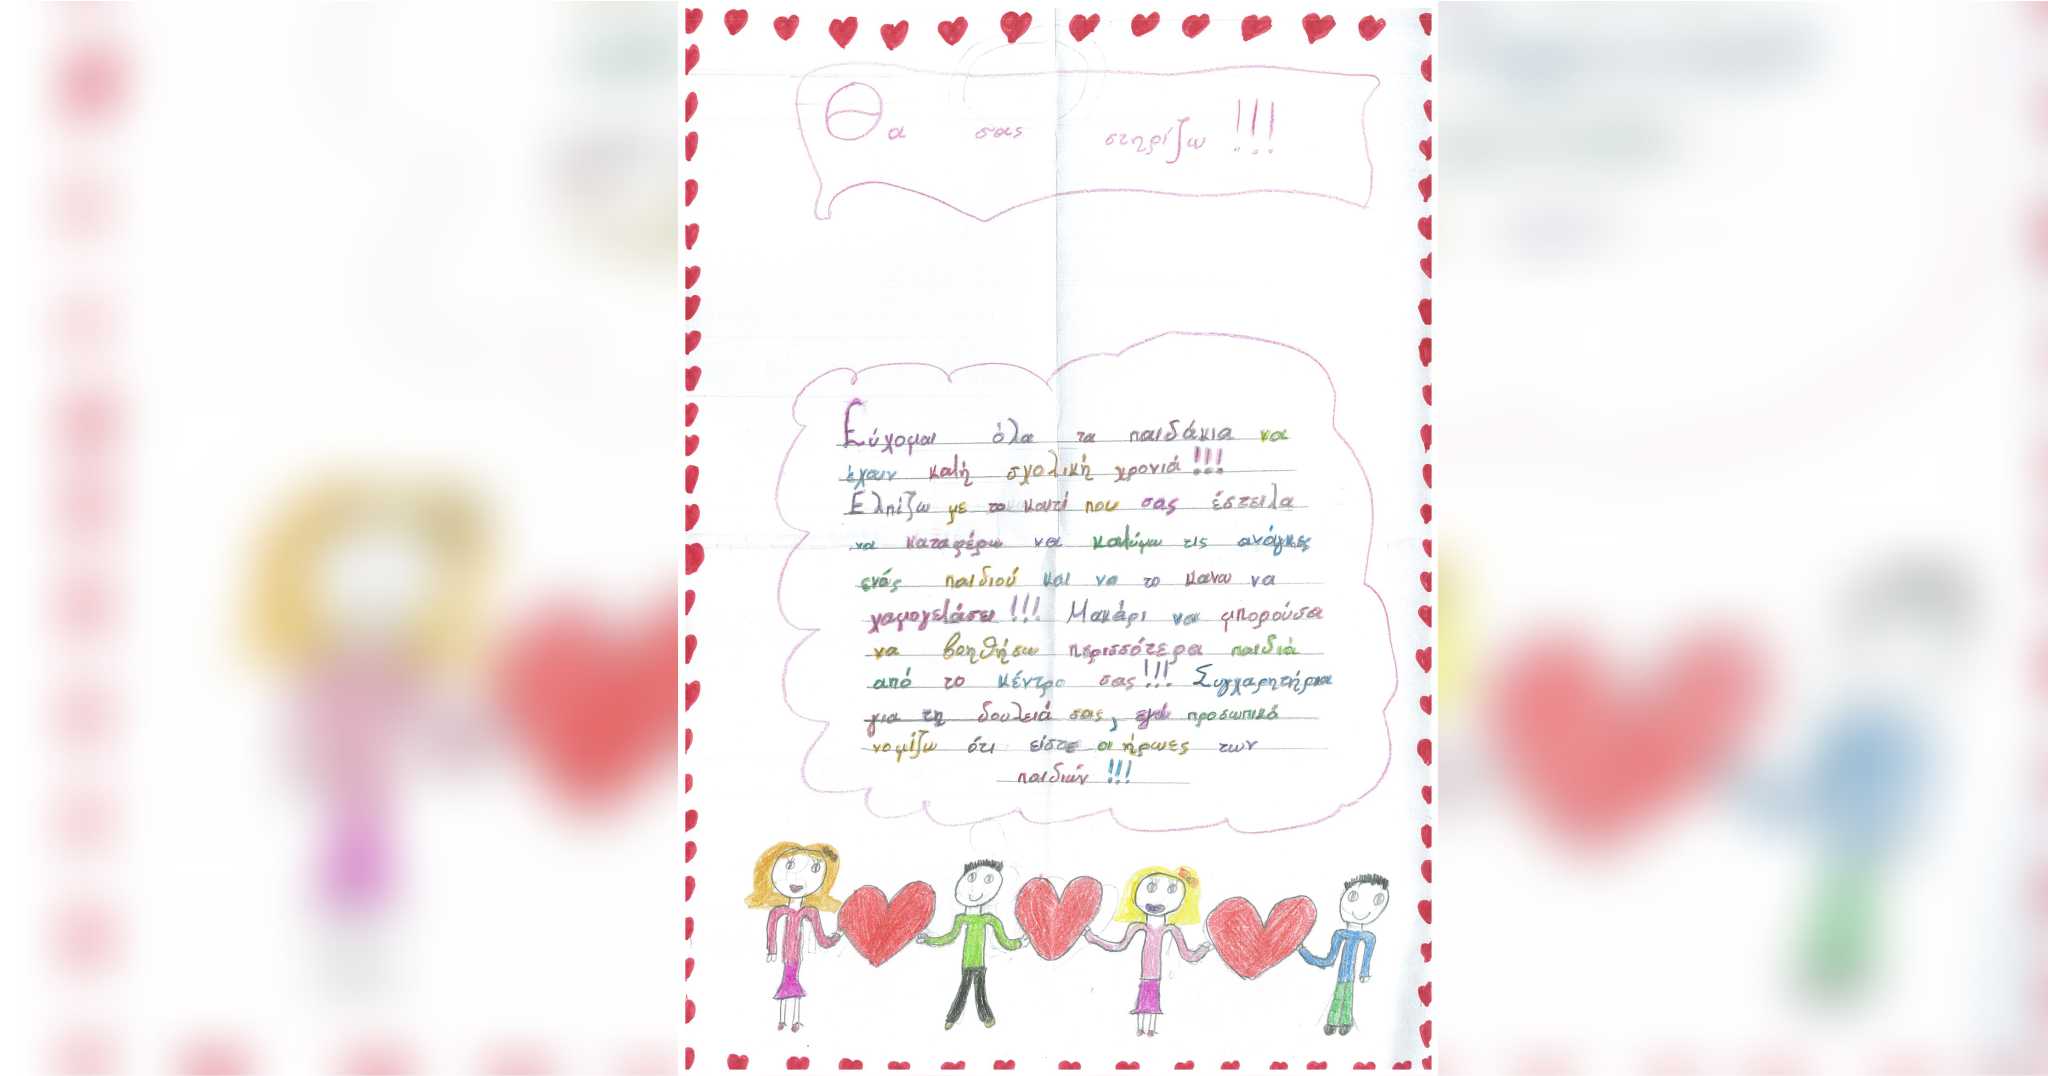 Θα σας στηρίζω !!!
Εύχομαι όλα τα παιδάκια να
έχουν καλή σχολική χρονιά !!!
Ελπίζω με το κουτί που σας έστειλα
να καταφέρω να καλύψω τις ανάγκες
ενός παιδιού και να το κανω να
χαμογελάσει !!! Μακάρι να μπορούσα
να βοηθήσω περισσότερα παιδιά
από το κέντρο σας !!! Συγχαρητήρια
για τη δουλειά σας, εγώ προσωπικά
νομίζω ότι είστε οι ήρωες των
παιδιών !!!